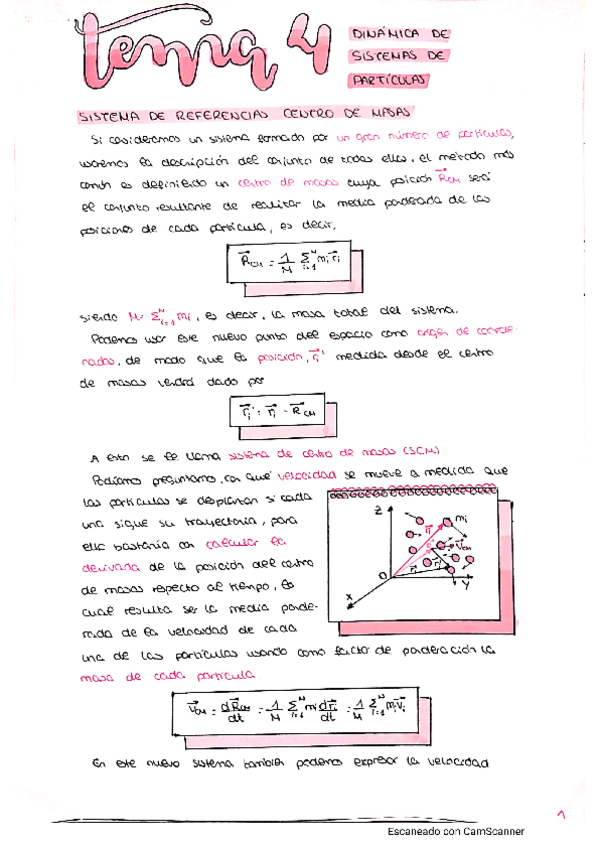 tema 4
DINÁMICA DE
SISTEMAS DE
PARTÍCULAS
SISTEMA DE REFERENCIAS CENTRO DE MASAS
Si consideramos un sistema formado por un gran número de partículas,
usaremos la descripción del conjunto de todas ellas, el método más
común es definiendo un centro de masas cuya posición R⃗CM será
el conjunto resultante de realizar la media ponderada de las
posiciones de cada partícula, es decir,
R⃗CM = 1/M Σᵢ₌₁ᴺ mᵢ r⃗ᵢ
siendo M = Σᵢ₌₁ᴺ mᵢ, es decir, la masa total del sistema.
Podemos usar este nuevo punto del espacio como origen de coorde-
nadas, de modo que la posición, r⃗ᵢ' medida desde el centro
de masas vendrá dado por
r⃗ᵢ' = r⃗ᵢ - R⃗CM
A esto se le llama sistema de centro de masas (SCM)
Podíamos preguntarnos, con qué velocidad se mueve a medida que
las partículas se desplantan si cada
una sigue su trayectoria, para
ello bastaría con calcular la
derivada de la posición del centro
de masas respecto al tiempo, la
cual resulta ser la media ponde-
rada de la velocidad de cada
una de las partículas usando como factor de ponderación la
masa de cada partícula
Z
mᵢ
O
Y
X
v⃗CM = dR⃗CM/dt = 1/M Σᵢ₌₁ᴺ mᵢ dr⃗ᵢ/dt = 1/M Σᵢ₌₁ᴺ mᵢv⃗ᵢ
En este nuevo sistema también podemos expresar la velocidad
1
Escaneado con CamScanner